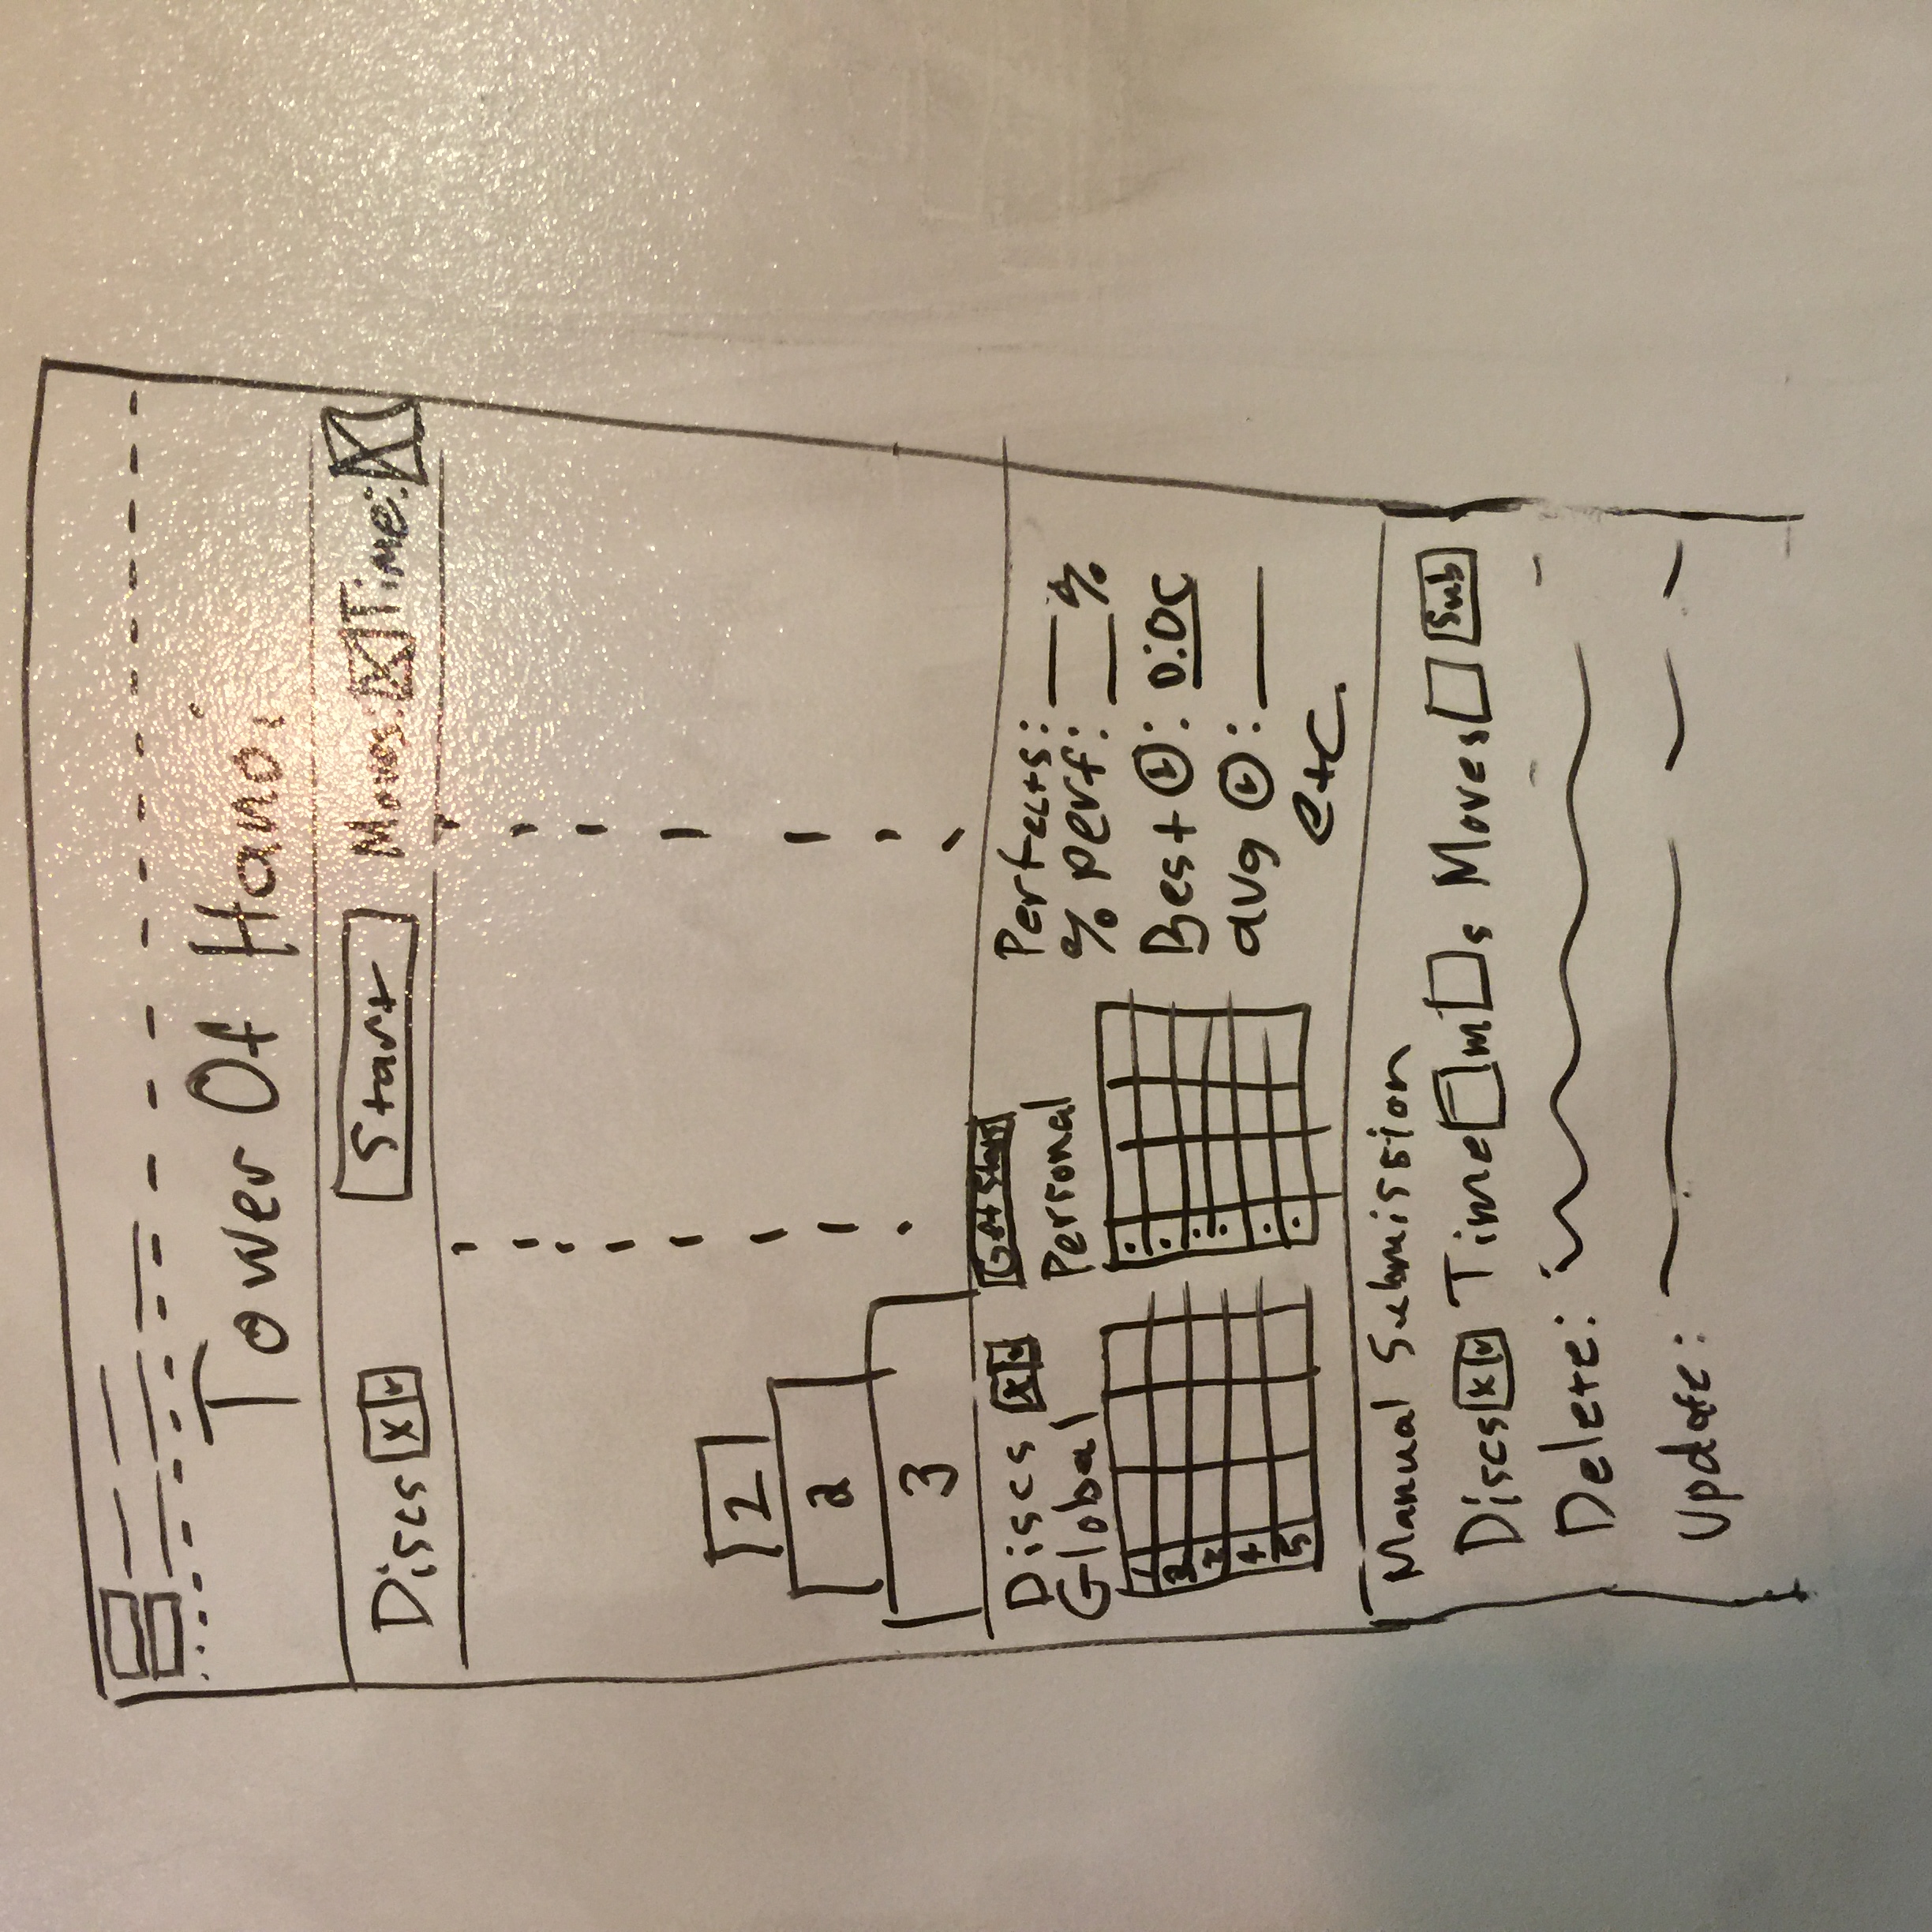 Tower Of Hanoi
Discs X Start Moves: X Time: X
2
2
3
Discs X Get Stats
Global Personal
1
2
3
4
5
Perfects: ___
% perf: ___%
Best : 0:0
avg : ___
etc.
Manual Submission
Discs X Time m s Moves Sub
Delete:
Update: